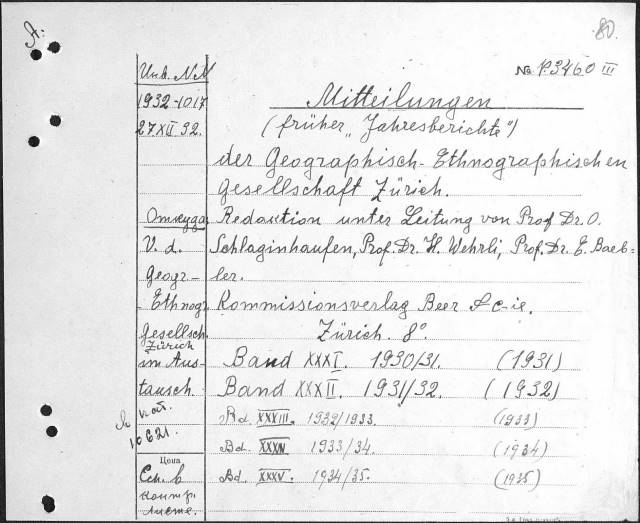 A.
80.
Инв. №№
№ P.3460 III
1932-1017
27 XII 32.
Mitteilungen
(früher „Jahresberichte")
der Geographisch-Ethnographischen
Gesellschaft Zürich.
Откуда
Redaktion unter Leitung von Prof Dr. O.
V. d.
Schlaginhaufen, Prof. Dr. H. Wehrli, Prof. Dr. E. Baeb=
Geogr-
ler.
Ethnogr.
Kommissionsverlag Beer & C-ie.
Gesellsch.
Zürich. 8°.
Zürich
im Aus-
Band XXXI. 1930/31. (1931)
tausch.
Band XXXII. 1931/32. (1932)
Bd. XXXIII. 1932/1933. (1933)
10621.
Bd. XXXIV 1933/34. (1934)
Цена
Сч. в
Bd. XXXV. 1934/35. (1935)
контр.